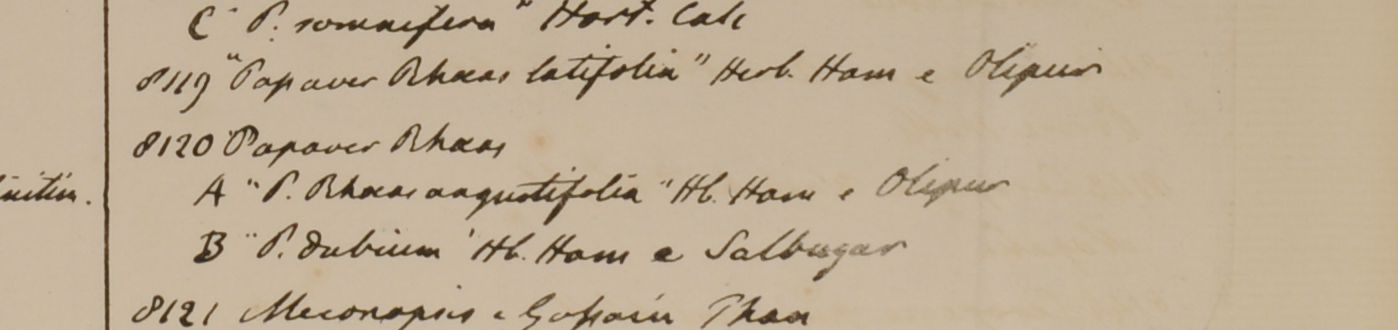 C "P. somnifera" Hort. Calc
8119 "Papaver Rhæas latifolia" Herb. Ham e Olipur
8120 Papaver Rhæas
A "P. Rhæas angustifolia" Hb. Ham e Olipur
B "P. dubium" Hb. Ham e Salbugar
8121 Meconopsis e Gossain Than